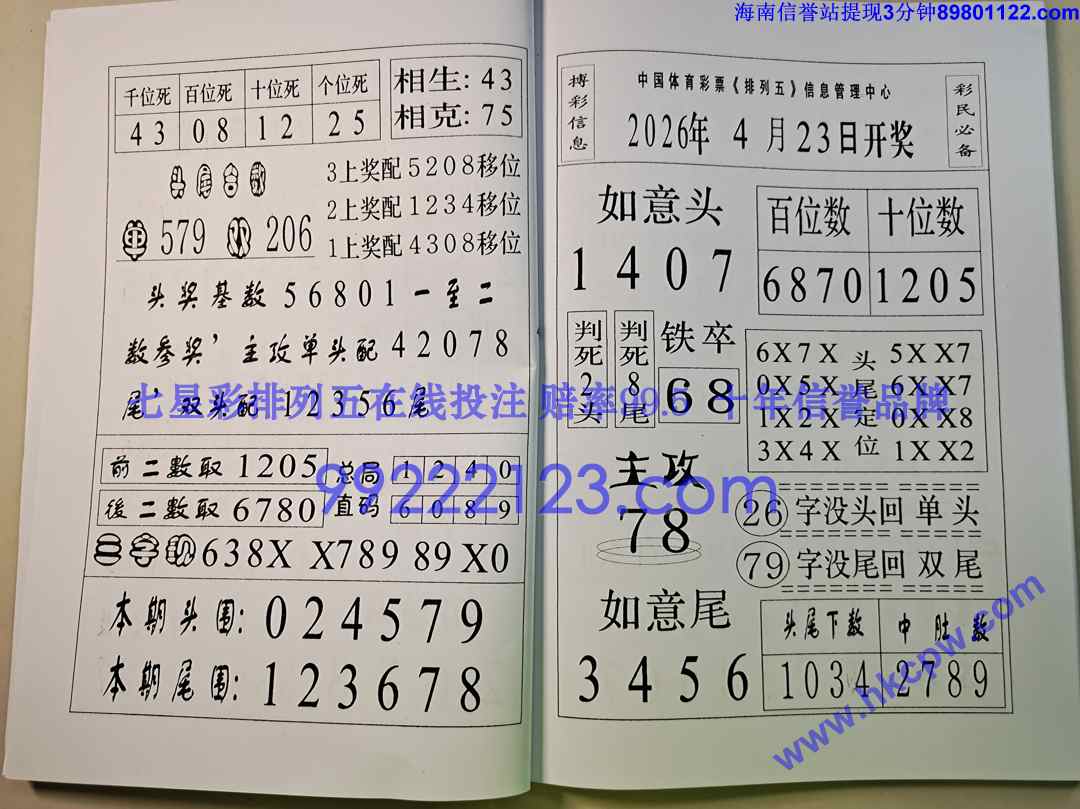 海南信誉站提现3分钟89801122.com
千位死 百位死 十位死 个位死
43 08 12 25
相生: 43
相克: 75
3上奖配5208移位
2上奖配1234移位
1上奖配4308移位
579 206
头奖基数56801一至二
数参奖’主攻单头配42078
尾’双头配12356尾
前二数取1205
後二数取6780
总局 1 2 4 0
直码 6 0 8 9
638X X789 89X0
本期头围: 024579
本期尾围: 123678
搏彩信息
中国体育彩票《排列五》信息管理中心
2026年4月23日开奖
彩民必备
如意头
1407
百位数 十位数
6870 1205
判死2头
判死8尾
铁卒
68
头尾定位
6X7X 5XX7
0X5X 6XX7
1X2X 0XX8
3X4X 1XX2
主攻
78
26字没头回单头
79字没尾回双尾
如意尾
3456
头尾下数 中肚数
1034 2789
七星彩排列五在线投注 赔率99.5 十年信誉品牌
99222123.com
www.hkcpw.com